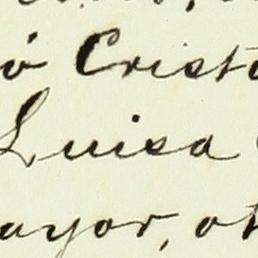 ó Cristo
Luisa
ayor, ot